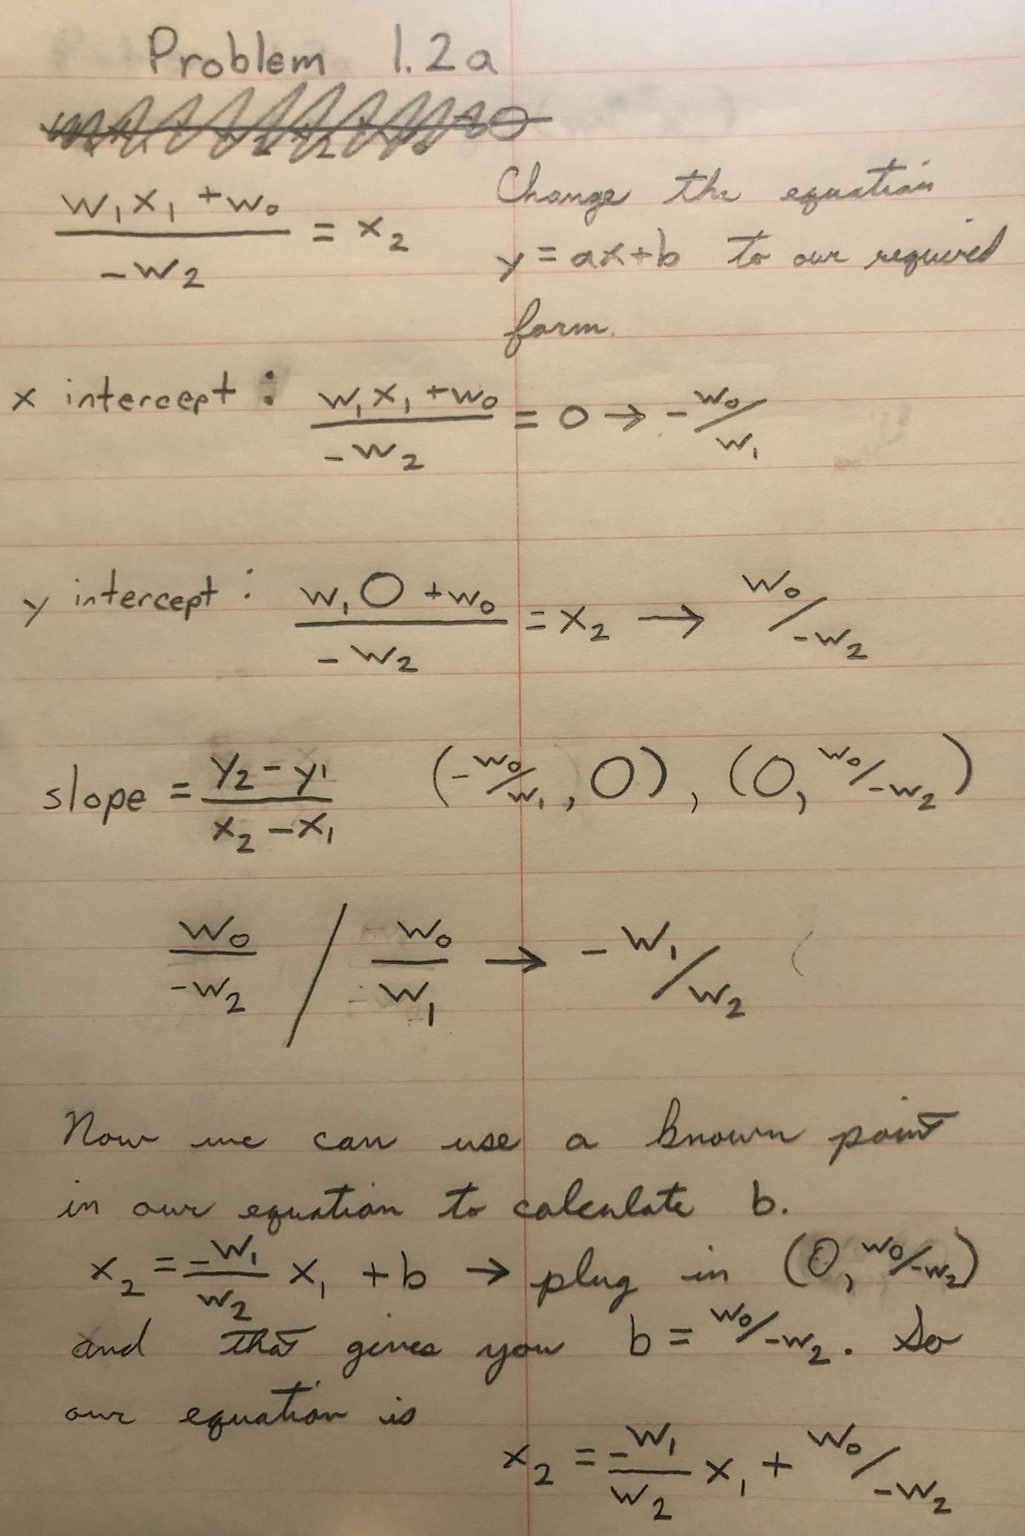 Problem 1.2a
(w₁x₁ + w₀) / -w₂ = x₂
Change the equation
y = ax+b to our required
form.
x intercept : (w₁x₁ + w₀) / -w₂ = 0 → -w₀/w₁
y intercept : (w₁0 + w₀) / -w₂ = x₂ → w₀/-w₂
slope = (y₂ - y₁) / (x₂ - x₁) (-w₀/w₁, 0), (0, w₀/-w₂)
w₀/-w₂ / w₀/w₁ → -w₁/w₂
Now we can use a known point
in our equation to calculate b.
x₂ = -w₁/w₂ x₁ + b → plug in (0, w₀/-w₂)
and that gives you b = w₀/-w₂. So
our equation is
x₂ = -w₁/w₂ x₁ + w₀/-w₂